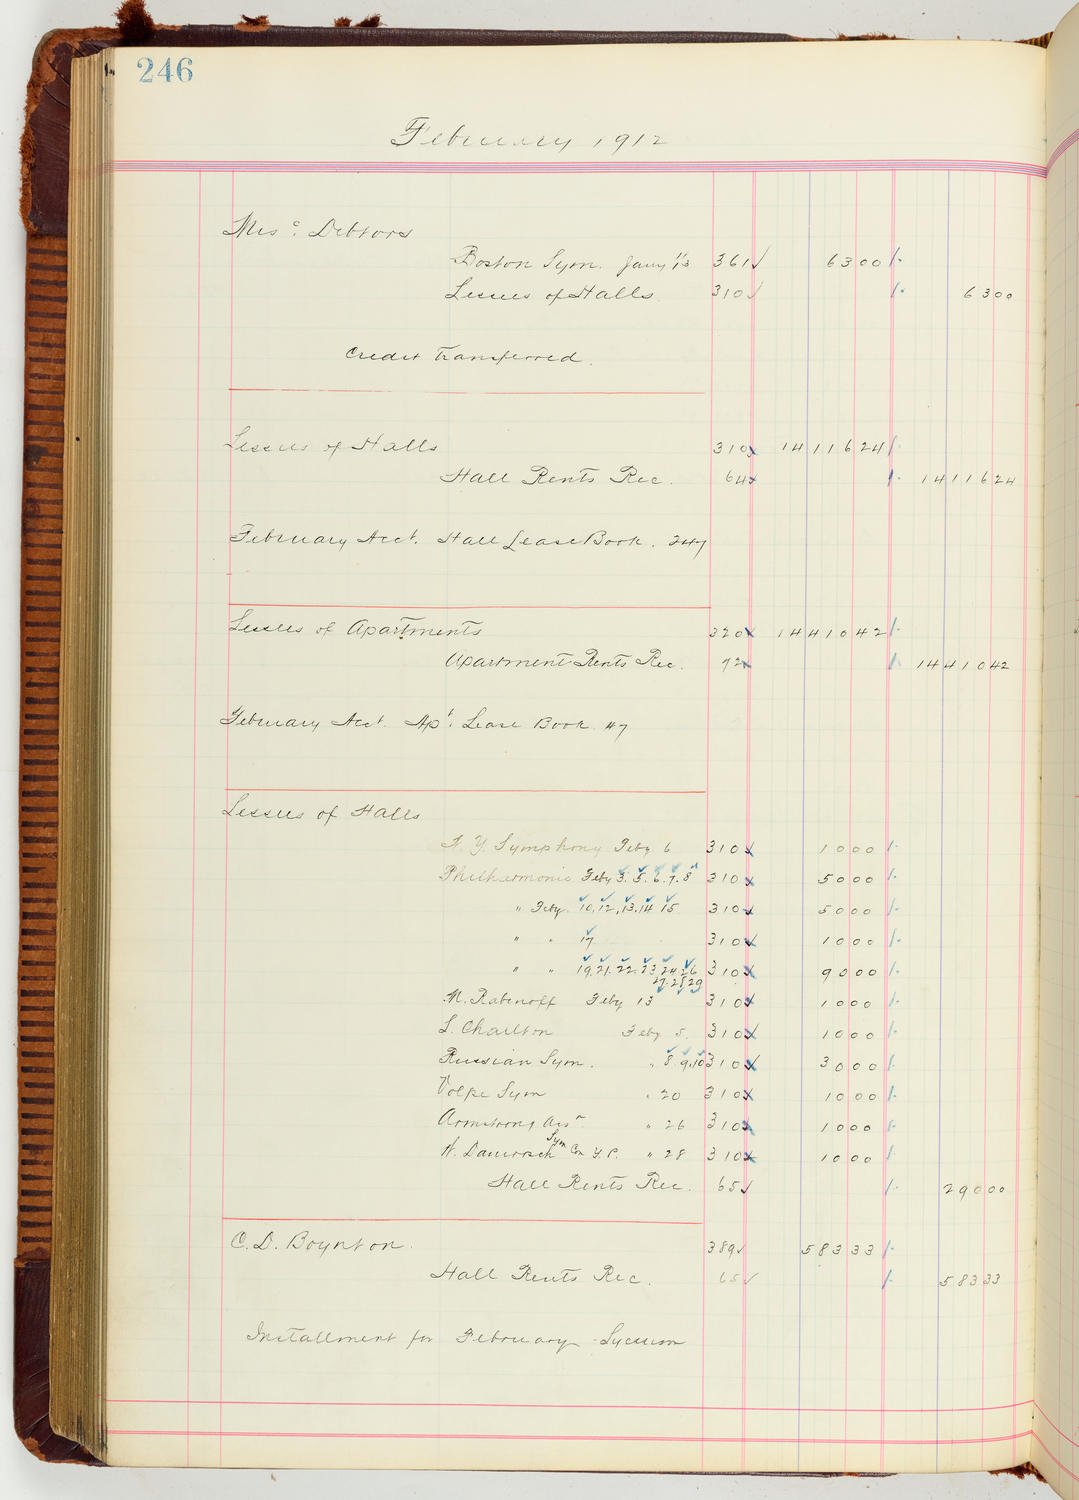 246
February 1912
Misc. Debtors
Boston Sym. Jany 13 361 ✓ 6300
Lessees of Halls 310 ✓ 6300
Credit Transferred.
Lessees of Halls 310 1411624
Hall Rents Rec. 64 1411624
February Acct. Hall Lease Book. 247
Lessees of Apartments 320 1441042
Apartment Rents Rec. 92 1441042
February Acct. Apt. Lease Book 47
Lessees of Halls
N. Y. Symphony Feby 6 310 1000
Philharmonic Feby 3. 5. 6. 7. 8 310 5000
" Feby. 10. 12. 13. 14 15 310 5000
" " 17 310 1000
" " 19. 21. 22. 23 24. 26 310 9000
27. 28 29
M. Rabinoff Feby 13 310 1000
L. Charlton Feby 5. 310 1000
Russian Sym. " 8. 9. 10 310 3000
Volpe Sym " 20 310 1000
Armstrong Assn " 26 310 1000
W. Damrosch Sym Con Y. P. " 28 310 1000
Hall Rents Rec. 65 ✓ 29000
C. D. Boynton. 389 ✓ 58333
Hall Rents Rec. 65 ✓ 58333
Installment for February - Lyceum